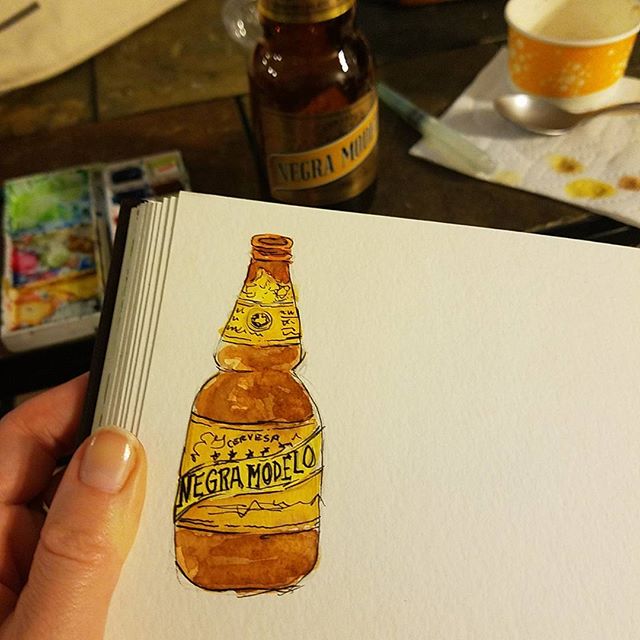 NEGRA MODE
CERVESA
NEGRA MODELO